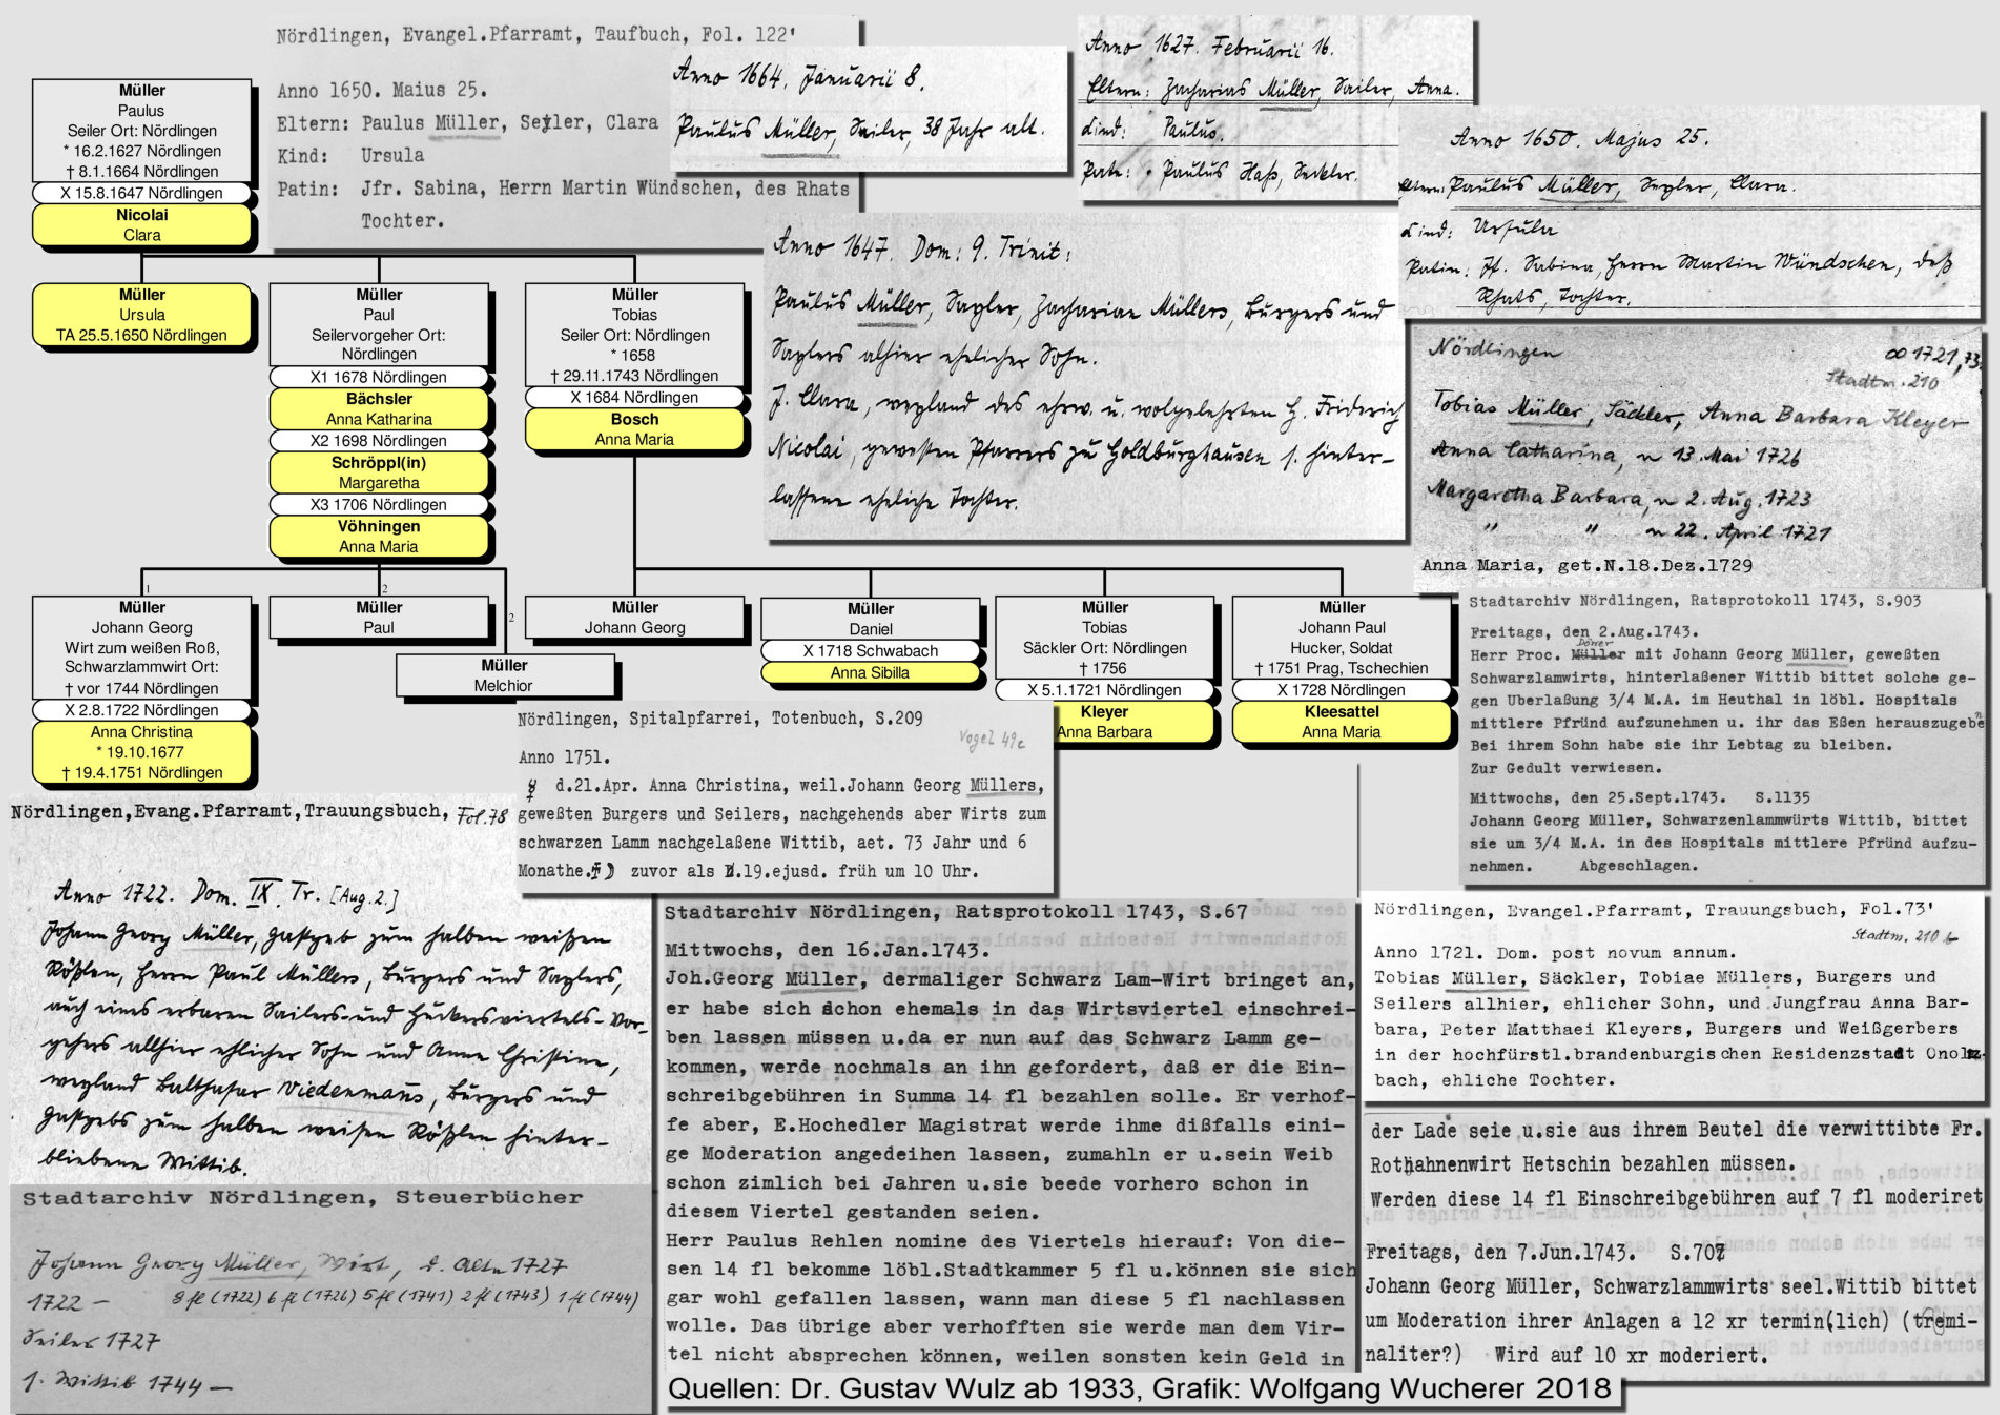 Müller
Paulus
Seiler Ort: Nördlingen
* 16.2.1627 Nördlingen
† 8.1.1664 Nördlingen
X 15.8.1647 Nördlingen
Nicolai
Clara
Müller
Ursula
TA 25.5.1650 Nördlingen
Müller
Paul
Seilervorgeher Ort:
Nördlingen
X1 1678 Nördlingen
Bächsler
Anna Katharina
X2 1698 Nördlingen
Schröppl(in)
Margaretha
X3 1706 Nördlingen
Vöhningen
Anna Maria
Müller
Tobias
Seiler Ort: Nördlingen
* 1658
† 29.11.1743 Nördlingen
X 1684 Nördlingen
Bosch
Anna Maria
1
2
2
Müller
Johann Georg
Wirt zum weißen Roß,
Schwarzlammwirt Ort:
† vor 1744 Nördlingen
X 2.8.1722 Nördlingen
Anna Christina
* 19.10.1677
† 19.4.1751 Nördlingen
Müller
Paul
Müller
Melchior
Müller
Johann Georg
Müller
Daniel
X 1718 Schwabach
Anna Sibilla
Müller
Tobias
Säckler Ort: Nördlingen
† 1756
X 5.1.1721 Nördlingen
Kleyer
Anna Barbara
Müller
Johann Paul
Hucker, Soldat
† 1751 Prag, Tschechien
X 1728 Nördlingen
Kleesattel
Anna Maria
Nördlingen, Evangel.Pfarramt, Taufbuch, Fol. 122'
Anno 1650. Maius 25.
Eltern: Paulus Müller, Seyler, Clara
Kind: Ursula
Patin: Jfr. Sabina, Herrn Martin Wündschen, des Rhats
Tochter.
Anno 1664. Januarii 8.
Paulus Müller, Sailer, 38 Jahr alt.
Anno 1627. Februarii 16.
Eltern: Zacharias Müller, Sailer, Anna.
Kind: Paulus.
Pate: Paulus Haß, Seckler.
Anno 1650. Majus 25.
Eltern: Paulus Müller, Seyler, Clara.
Kind: Ursula
Patin: Jf. Sabina, Herrn Martin Wündschen, deß
Rhats, Tochter.
Anno 1647. Dom: 9. Trinit:
Paulus Müller, Sayler, Zachariae Müllers, Burgers und
Saylers alhier ehelicher Sohn.
J. Clara, weyland des ehrw. u. wolgelehrten H. Friderich
Nicolai, gewesten Pfarrers zu Goldburghausen s. hinter-
lassene eheliche Tochter.
Nördlingen
oo 1721, 73
Stadtm. 210
Tobias Müller, Säckler, Anna Barbara Kleyer
Anna Catharina, n 13. Mai 1726
Margaretha Barbara, n 2. Aug. 1723
" " n 22. April 1721
Anna Maria, get.N.18.Dez.1729
Stadtarchiv Nördlingen, Ratsprotokoll 1743, S.903
Freitags, den 2.Aug.1743.
Herr Proc. Müller mit Johann Georg Müller, geweßten
Schwarzlamwirts, hinterlaßener Wittib bittet solche ge-
gen Uberlaßung 3/4 M.A. im Heuthal in löbl. Hospitals
mittlere Pfründ aufzunehmen u. ihr das Eßen herauszugebe
Bei ihrem Sohn habe sie ihr Lebtag zu bleiben.
Zur Gedult verwiesen.
Mittwochs, den 25.Sept.1743. S.1135
Johann Georg Müller, Schwarzenlammwürts Wittib, bittet
sie um 3/4 M.A. in des Hospitals mittlere Pfründ aufzu-
nehmen. Abgeschlagen.
Nördlingen, Spitalpfarrei, Totenbuch, S.209
Vogel 49c
Anno 1751.
d.21.Apr. Anna Christina, weil.Johann Georg Müllers,
geweßten Burgers und Seilers, nachgehends aber Wirts zum
schwarzen Lamm nachgelaßene Wittib, aet. 73 Jahr und 6
Monathe.†) zuvor als d.19.ejusd. früh um 10 Uhr.
Nördlingen,Evang.Pfarramt,Trauungsbuch, Fol.78
Anno 1722. Dom. IX. Tr. [Aug. 2.]
Johann Georg Müller, Gastgeb zum halben weißen
Rößlen, Herrn Paul Müllers, Burgers und Saylers,
auch eines erbaren Sailers- und Huckersviertels-Vor-
gehers allhier ehlicher Sohn und Anna Christina,
weyland Balthasar Wiedenmans, Burgers und
Gastgebs zum halben weisen Rößlen hinter-
bliebene Wittib.
Stadtarchiv Nördlingen, Steuerbücher
Johann Georg Müller, Wirt, d. Alte 1727
1722 - 8 fl (1722) 6 fl (1726) 5 fl (1741) 2 fl (1743) 1 fl (1744)
Seiler 1727
s. Wittib 1744 -
Stadtarchiv Nördlingen, Ratsprotokoll 1743, S.67
Mittwochs, den 16.Jan.1743.
Joh.Georg Müller, dermaliger Schwarz Lam-Wirt bringet an,
er habe sich schon ehemals in das Wirtsviertel einschrei-
ben lassen müssen u.da er nun auf das Schwarz Lamm ge-
kommen, werde nochmals an ihn gefordert, daß er die Ein-
schreibgebühren in Summa 14 fl bezahlen solle. Er verhof-
fe aber, E.Hochedler Magistrat werde ihme dißfalls eini-
ge Moderation angedeihen lassen, zumahln er u.sein Weib
schon zimlich bei Jahren u.sie beede vorhero schon in
diesem Viertel gestanden seien.
Herr Paulus Rehlen nomine des Viertels hierauf: Von die-
sen 14 fl bekomme löbl.Stadtkammer 5 fl u.können sie sich
gar wohl gefallen lassen, wann man diese 5 fl nachlassen
wolle. Das übrige aber verhofften sie werde man dem Vir-
tel nicht absprechen können, weilen sonsten kein Geld in
Nördlingen, Evangel.Pfarramt, Trauungsbuch, Fol.73'
Stadtm. 210 b
Anno 1721. Dom. post novum annum.
Tobias Müller, Säckler, Tobiae Müllers, Burgers und
Seilers allhier, ehlicher Sohn, und Jungfrau Anna Bar-
bara, Peter Matthaei Kleyers, Burgers und Weißgerbers
in der hochfürstl.brandenburgischen Residenzstadt Onolz-
bach, ehliche Tochter.
der Lade seie u.sie aus ihrem Beutel die verwittibte Fr.
Rothahnenwirt Hetschin bezahlen müssen.
Werden diese 14 fl Einschreibgebühren auf 7 fl moderiret
Freitags, den 7.Jun.1743. S.707
Johann Georg Müller, Schwarzlammwirts seel.Wittib bittet
um Moderation ihrer Anlagen a 12 xr termin(lich) (tremi-
naliter?) Wird auf 10 xr moderiert.
Quellen: Dr. Gustav Wulz ab 1933, Grafik: Wolfgang Wucherer 2018